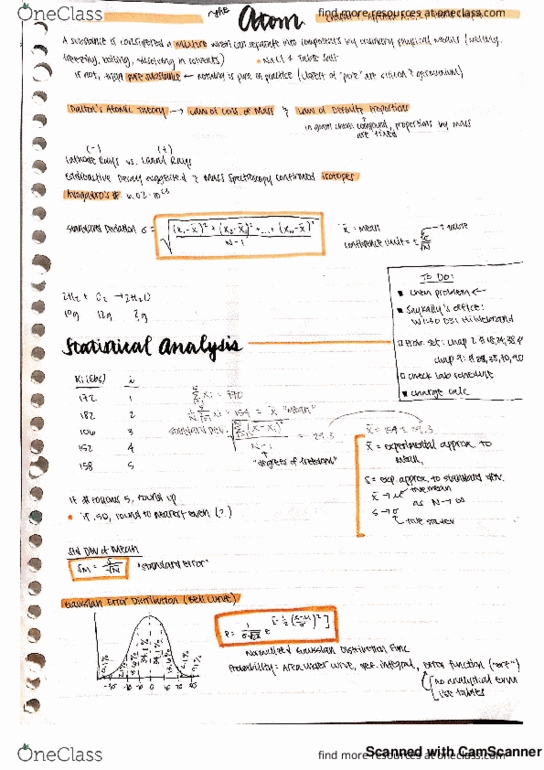 OneClass
find more resources at oneclass.com
The Atom
A substance is considered a mixture when can separate into components by ordinary physical means (melting,
freezing, boiling, dissolving in solvents)
• NaCl ≠ Table Salt
is not, then pure substance ← nothing is pure in practice (closest of "pure" are silicon & germanium)
Dalton's Atomic Theory → Law of Cons of Mass & Law of Definite Proportions
in given chem compound, proportions by mass
are fixed
(-) (+)
Cathode Rays vs. Canal Rays
Radioactive Decay suggested & Mass Spectroscopy confirmed isotopes
Avogadro's # 6.02·10²³
Standard Deviation s = √((x₁-x̄)² + (x₂-x̄)² + ... + (xₙ-x̄)² / N-1)
x̄ = mean
confidence limit = ± ts/√N
2H₂ + O₂ → 2H₂O
To Do:
chem problem ←
Saykally's office:
Hildebrand
check lab schedule
change calc
Statistical Analysis
xᵢ (lbs) i
172 1
182 2
106 3
152 4
158 5
Σ xᵢ = 770
1/N Σ xᵢ = 154 = x̄ "mean"
standard dev. √(Σ(x-xᵢ)² / N-1) = 29.3
"degrees of freedom"
x̄ = 154 ± 29.3
x̄ = experimental approx to
mean,
s = exp. approx. to standard dev.
x̄ → μ true mean
as N → ∞
s → σ
if # follows 5, round up
• if .50, round to nearest even (?)
Std Dev of Mean
Sm = s/√N "standard error"
Gaussian Error Distribution (Bell Curve)
34.1% 34.1%
P = 1/(σ√2π) e^[-½((x-μ)/σ)²]
Normalized Gaussian Distribution Func
Probability = Area under curve, def. integral, error function ("erf")
no analytical form
use tables
OneClass
find more resources at oneclass.com
Scanned with CamScanner